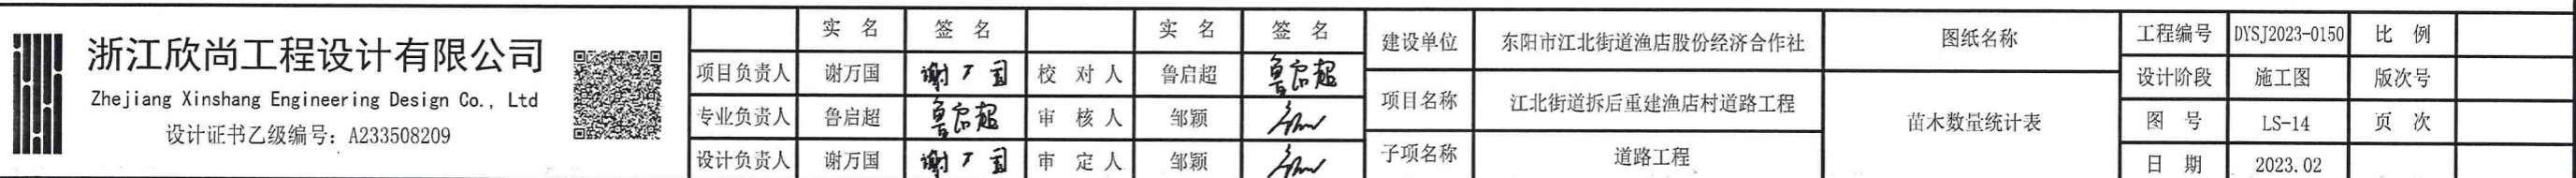 浙江欣尚工程设计有限公司
Zhejiang Xinshang Engineering Design Co., Ltd
设计证书乙级编号：A233508209
实 名 签 名 实 名 签 名
项目负责人 谢万国 谢万国 校 对 人 鲁启超 鲁启超
专业负责人 鲁启超 鲁启超 审 核 人 邹颖
设计负责人 谢万国 谢万国 审 定 人 邹颖
建设单位 东阳市江北街道渔店股份经济合作社
项目名称 江北街道拆后重建渔店村道路工程
子项名称 道路工程
图纸名称
苗木数量统计表
工程编号 DYSJ2023-0150 比 例
设计阶段 施工图 版次号
图 号 LS-14 页 次
日 期 2023.02